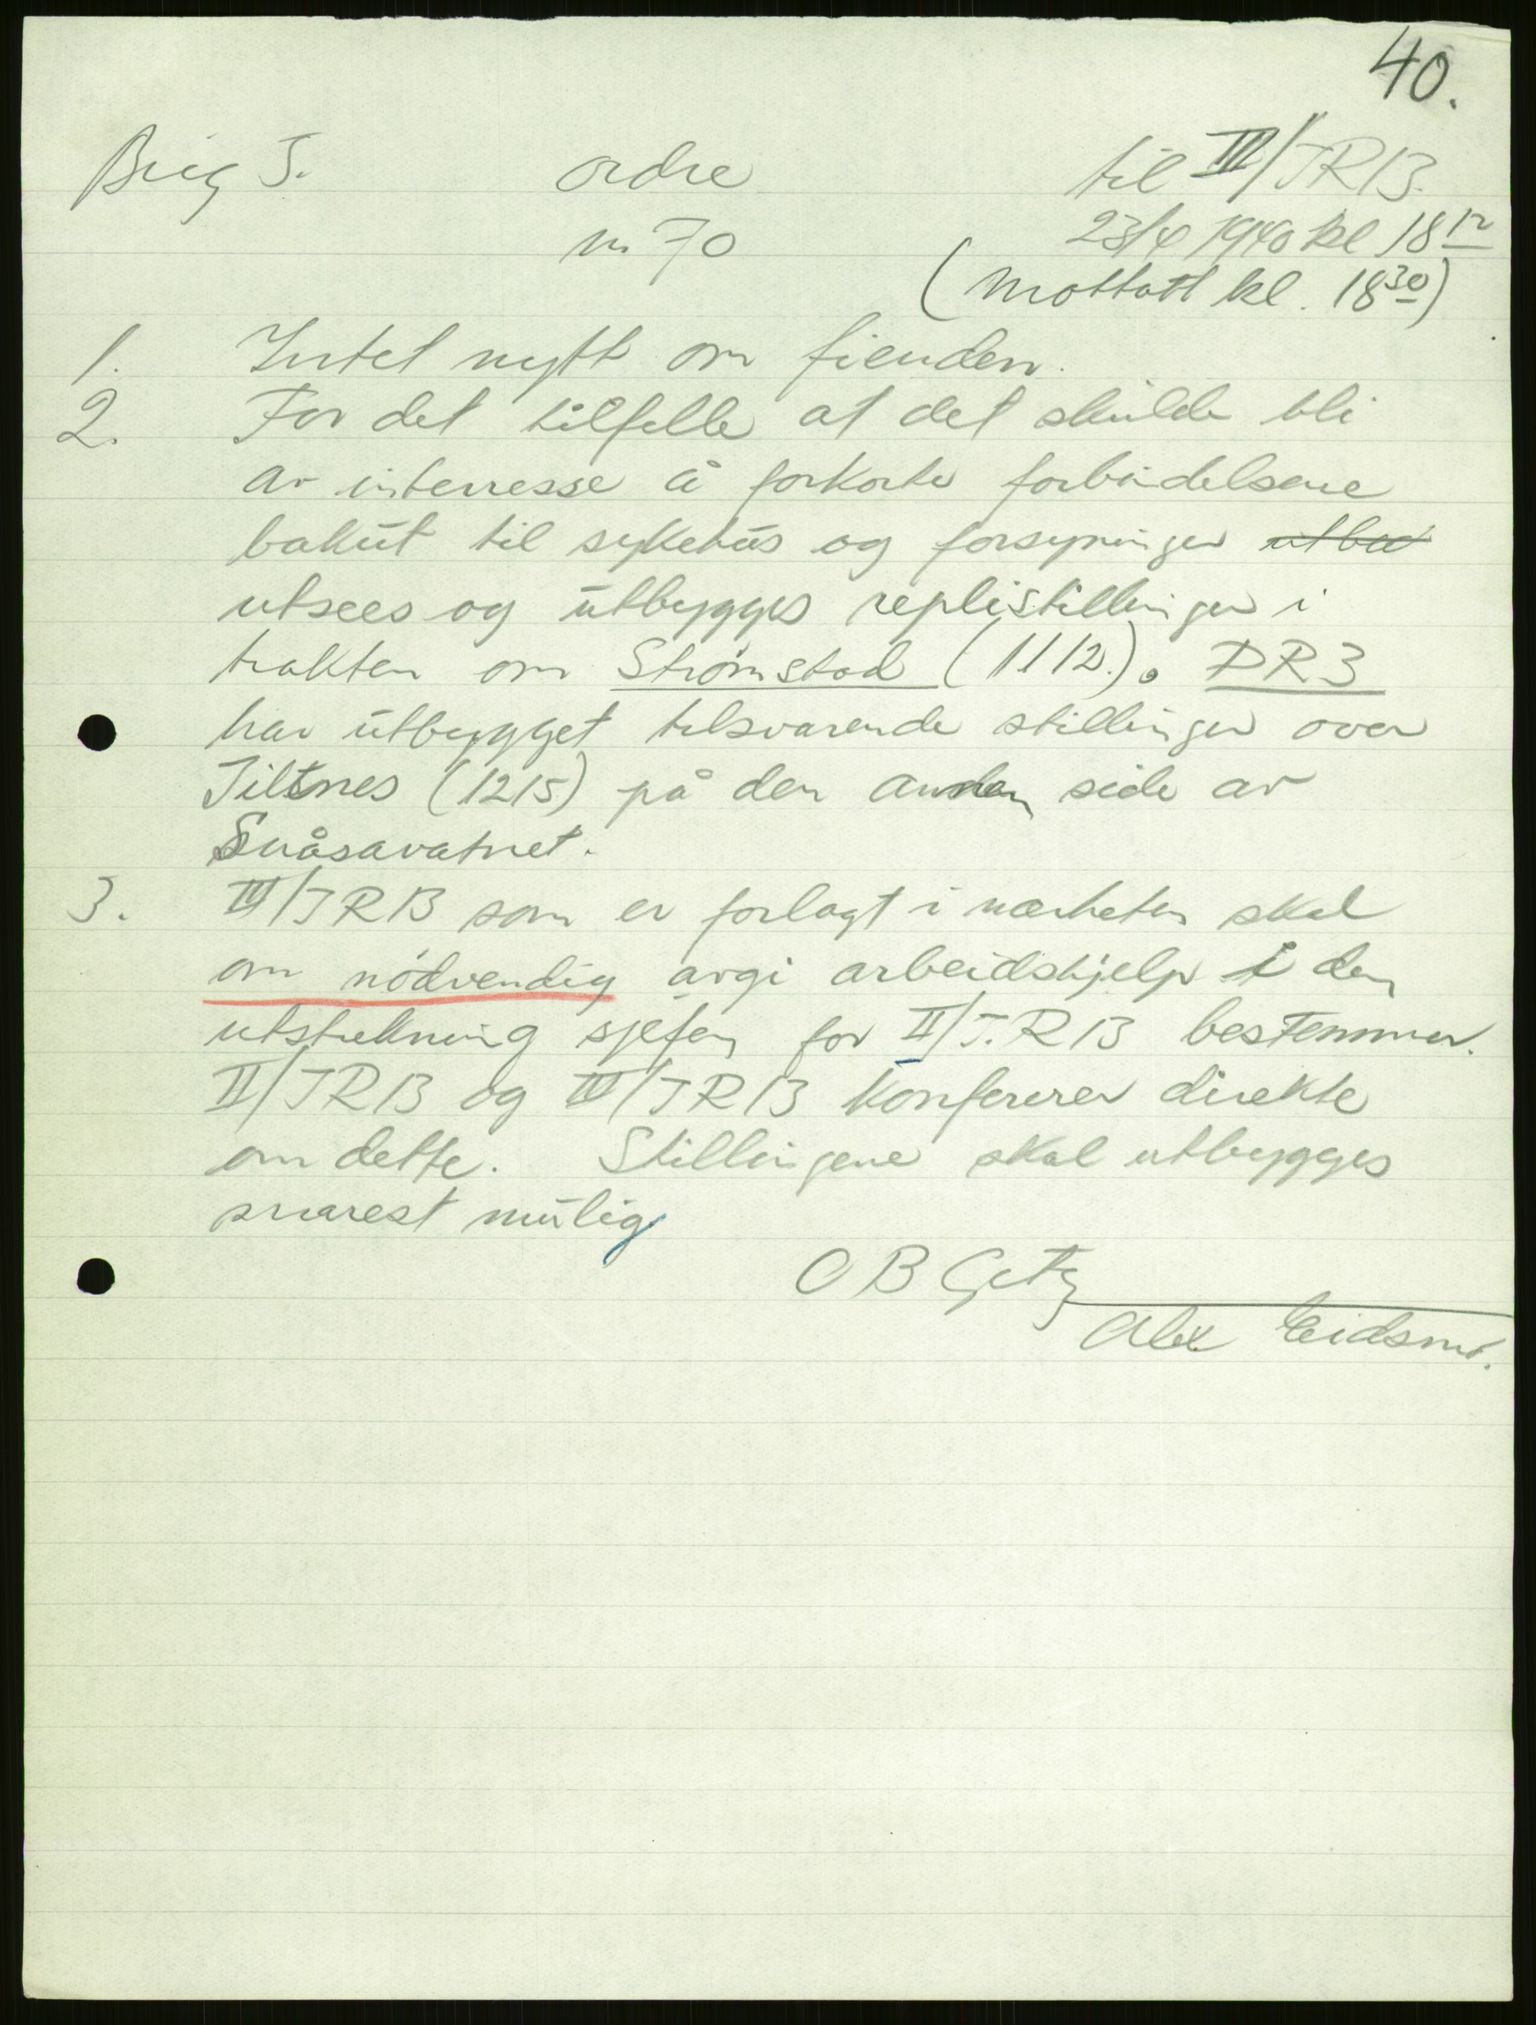 40.
Brig 5. ordre til III/IR 13.
nr 70 23/4 1940 kl 18 12
(Mottatt kl. 18 30)
1. Intet nytt om fienden.
2. For det tilfelle at det skulde bli
av interresse å forkorte forbindelsene
bakut til sykehus og forsyninger
utsees og utbygges replistillinger i
trakten om Strømstad (1112). DR 3
har utbygget tilsvarende stillinger over
Jiltnes (1215) på den anden side av
Snåsavatnet.
3. III/IR 13 som er forlagt i nærheten skal
om nödvendig avgi arbeidshjelp i den
utstrekning sjefen for II/I.R 13 bestemmer.
II/IR 13 og III/IR 13 konfererer direkte
om dette. Stillingene skal utbygges
snarest mulig
O B Getz
Alex Eidsmo.